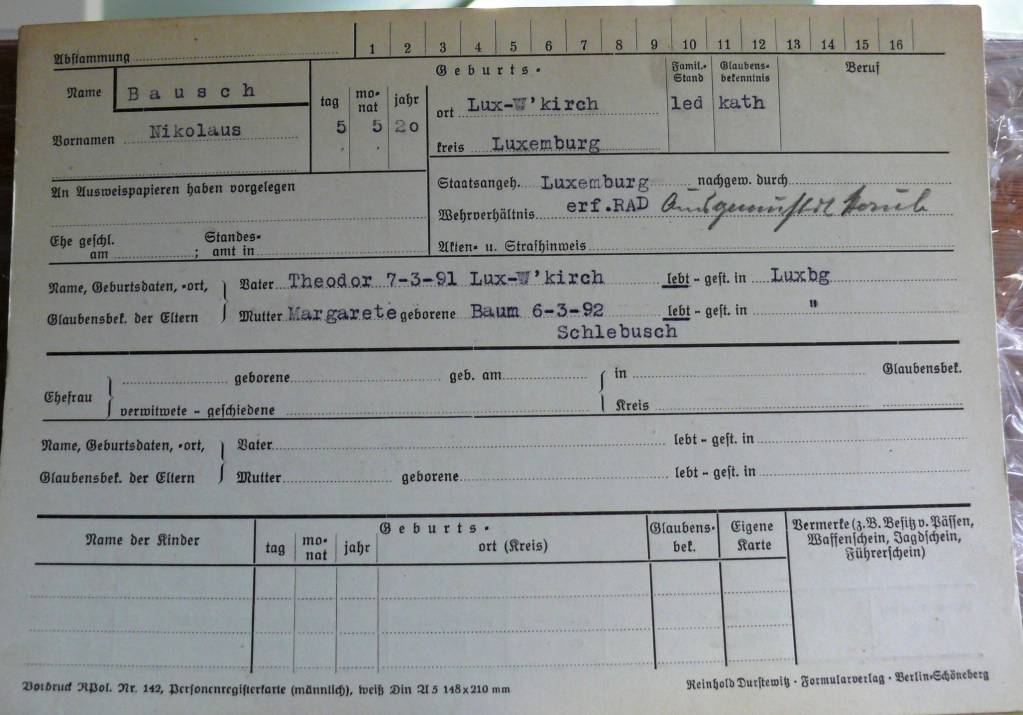 Abstammung 1 2 3 4 5 6 7 8 9 10 11 12 13 14 15 16
Name Bausch
Vornamen Nikolaus
tag monat jahr
5 5 20
Geburts-
ort Lux-W'kirch
kreis Luxemburg
Famil.-Stand
led
Glaubens-bekenntnis
kath
Beruf
An Ausweispapieren haben vorgelegen
Staatsangeh. Luxemburg nachgew. durch
Wehrverhältnis erf.RAD Ausgemustert
Ehe geschl. am ; Standes-amt in
Akten- u. Strafhinweis
Name, Geburtsdaten, -ort,
Glaubensbek. der Eltern
Vater Theodor 7-3-91 Lux-W'kirch lebt - gest. in Luxbg
Mutter Margarete geborene Baum 6-3-92 lebt - gest. in "
Schlebusch
Ehefrau
geborene geb. am in Glaubensbek.
verwitwete - geschiedene Kreis
Name, Geburtsdaten, -ort,
Glaubensbek. der Eltern
Vater lebt - gest. in
Mutter geborene lebt - gest. in
Name der Kinder
Geburts-
tag monat jahr ort (Kreis)
Glaubens-bek.
Eigene Karte
Vermerke (z.B. Besitz v. Pässen,
Waffenschein, Jagdschein,
Führerschein)
Vordruck RPol. Nr. 142, Personenregisterkarte (männlich), weiß Din A 5 148x210 mm
Reinhold Durstewitz · Formularverlag · Berlin-Schöneberg